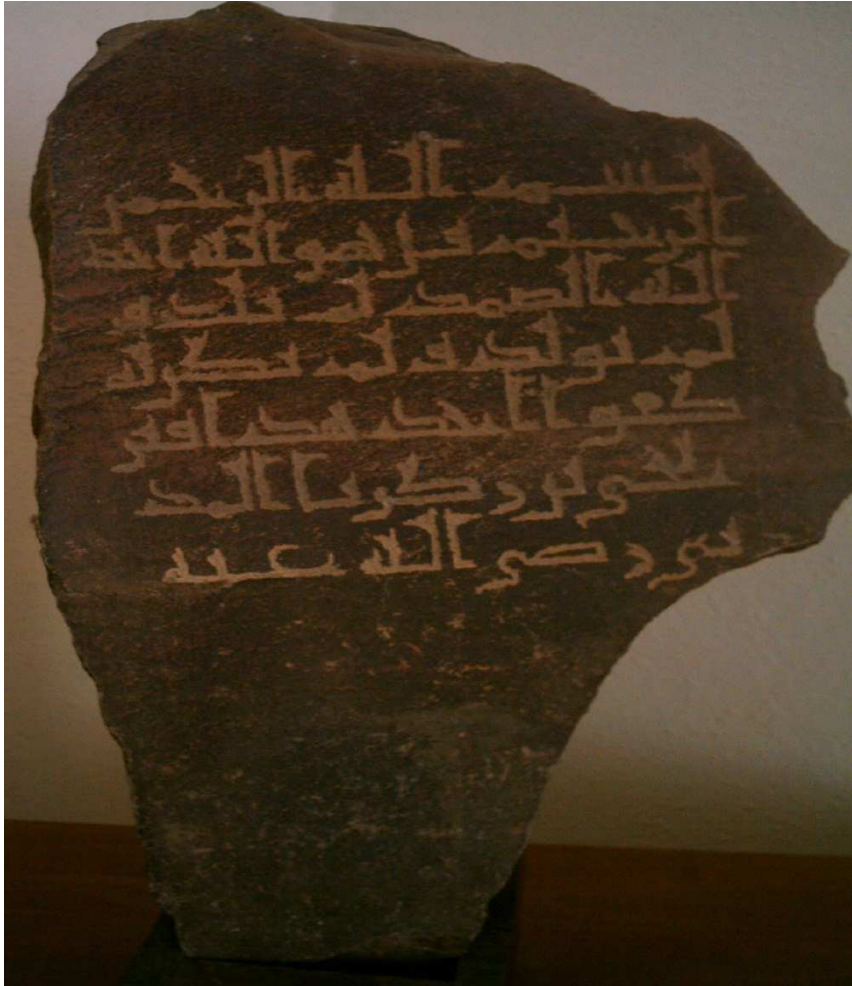 بسم الله الرحمن
الرحيم قل هو الله احد
الله الصمد لم يلد و
لم يولد و لم يكن له
كفوا احد هذا قبر
يحيى بن زكريا المد
ني رضي الله عنه